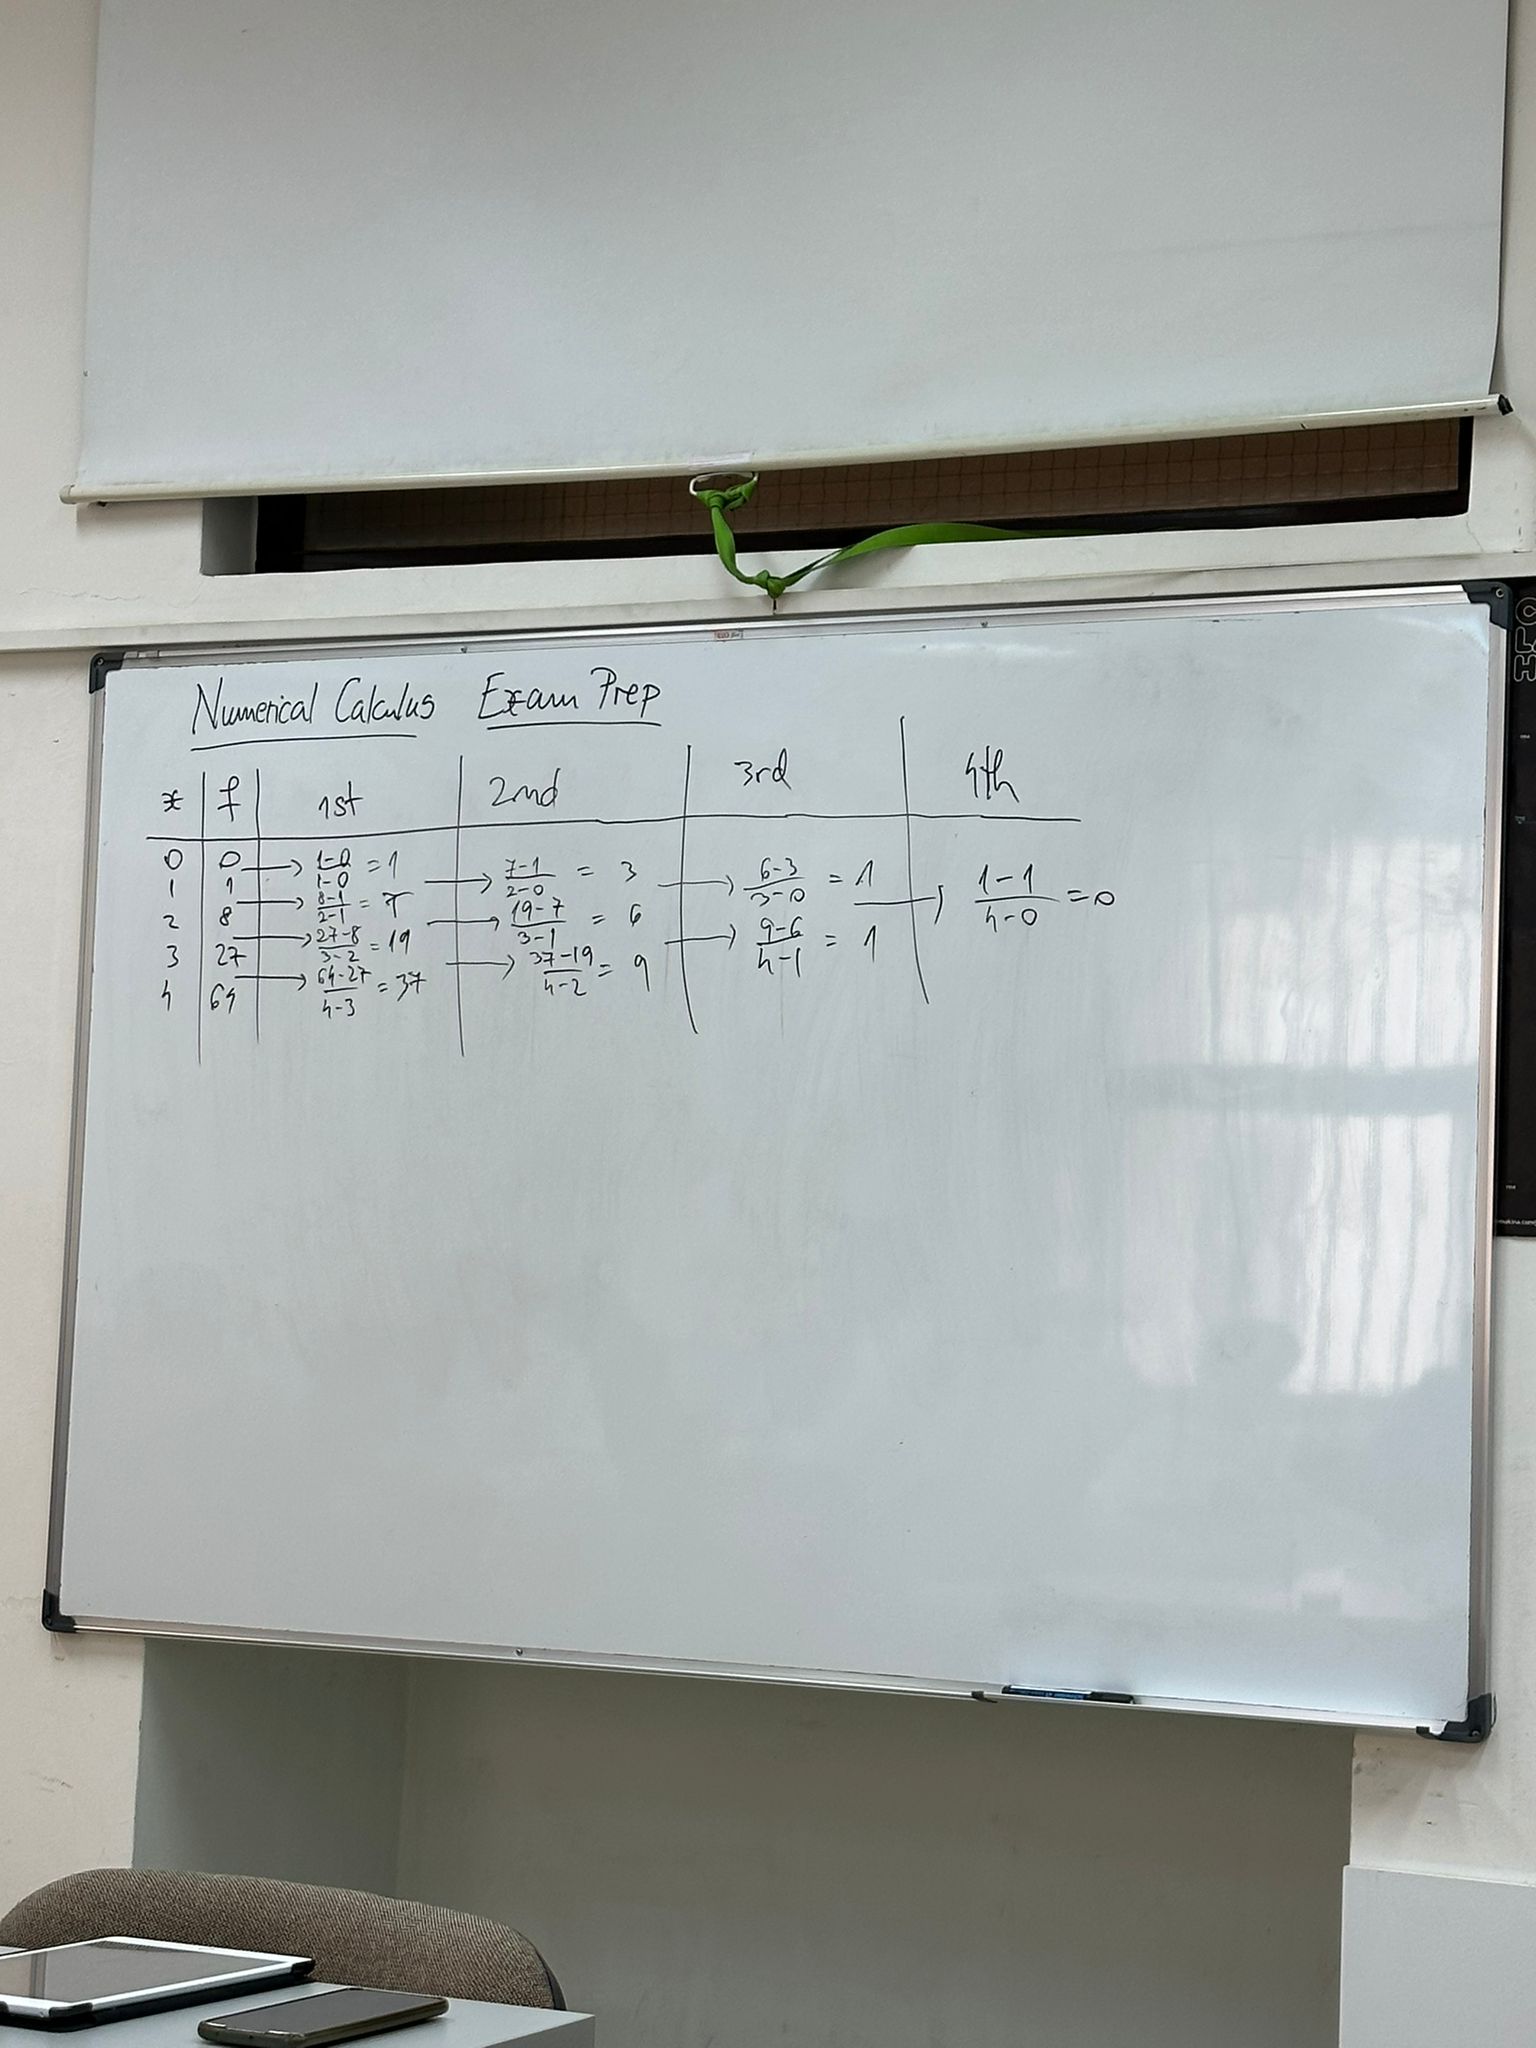 Numerical Calculus Exam Prep
x f 1st 2nd 3rd 4th
0 0 → 1-0/1-0 = 1 → 7-1/2-0 = 3 → 6-3/3-0 = 1 → 1-1/4-0 = 0
1 1 → 8-1/2-1 = 7 → 19-7/3-1 = 6 → 9-6/4-1 = 1
2 8 → 27-8/3-2 = 19 → 37-19/4-2 = 9
3 27 → 64-27/4-3 = 37
4 64